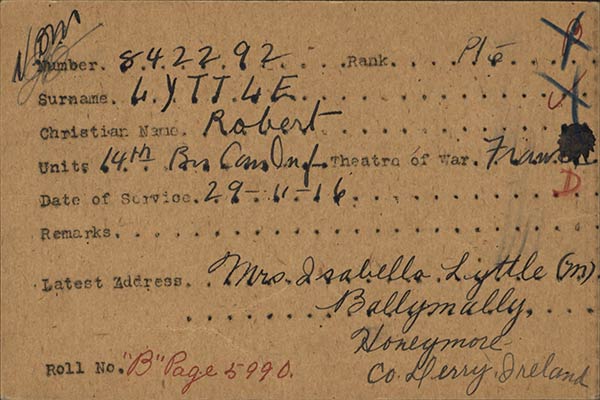 Number. 842292 Rank Pte B
Surname. LYTTLE V
Christian Name. Robert
Unit. 14th Bn Can Inf. Theatre of War. France
Date of Service. 29-11-16 D
Remarks.
Latest Address. Mrs. Isabella Lyttle (M)
Ballymally.
Honeymore
Co. Derry. Ireland
Roll No. "B" Page 5990.